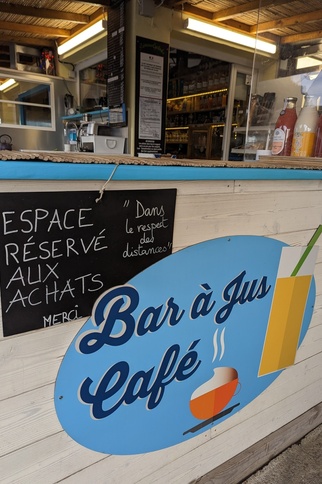 ESPACE
RÉSERVÉ
AUX
ACHATS
MERCI
"Dans
le respect
des
distances"
Bar à Jus
Café